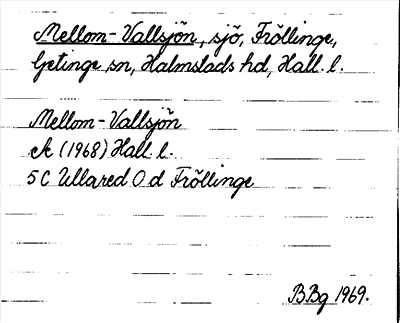 Mellom-Vallsjön, sjö, Fröllinge,
Getinge sn, Halmstads hd, Hall. l.
Mellom-Vallsjön
ek (1968) Hall. l.
5C Ullared 0 d Fröllinge
BBg 1969.